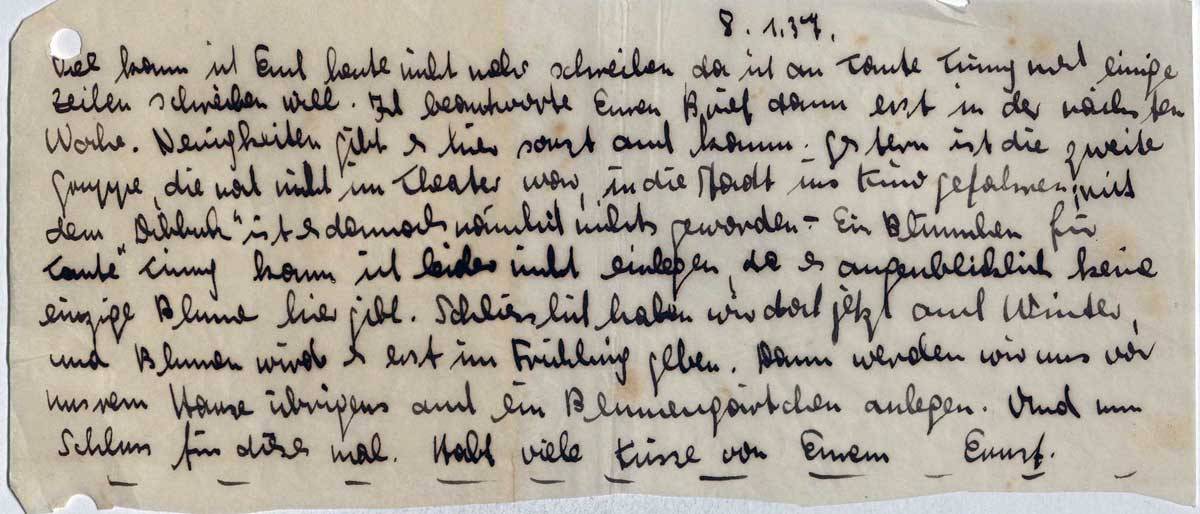 8.1.37.
Viel kann ich Euch heute nicht mehr schreiben da ich an Tante Cinny noch einige
Zeilen schreiben will. Ich beantworte Euren Brief dann erst in der nächsten
Woche. Neuigkeiten gibt es hier sonst auch kaum. Gestern ist die zweite
Gruppe, die noch nicht im Theater war, in die Stadt ins Kino gefahren, mit
dem „Dibbuk" ist es dennoch nämlich nichts geworden - Ein Blümchen für
Tante kann ich leider nicht einlegen, da es augenblicklich keine
einzige Blume hier gibt. Schliesslich haben wir doch jetzt auch Winter,
und Blumen wird es erst im Frühling geben. Dann werden wir uns vor
unsrem Hause übrigens auch ein Blumengärtchen anlegen. Und nun
Schluss für dieses mal. Habt viele Küsse von Eurem Ernst.